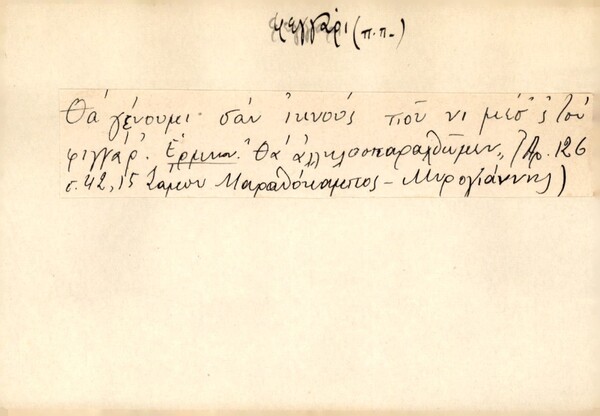 φεγγάρι (π.π.)
Θά γένουμι σάν ἰκνούς πιοῦ νι μέσ᾽ς τοὑ
φιγγάρ᾽. Ἑρμην. Θά ἀλληλοσπαραχθῶμεν, (Ἀρ. 126
σ. 42, 15 Σάμου Μαραθόκαμπος - Μυρογιάννης)